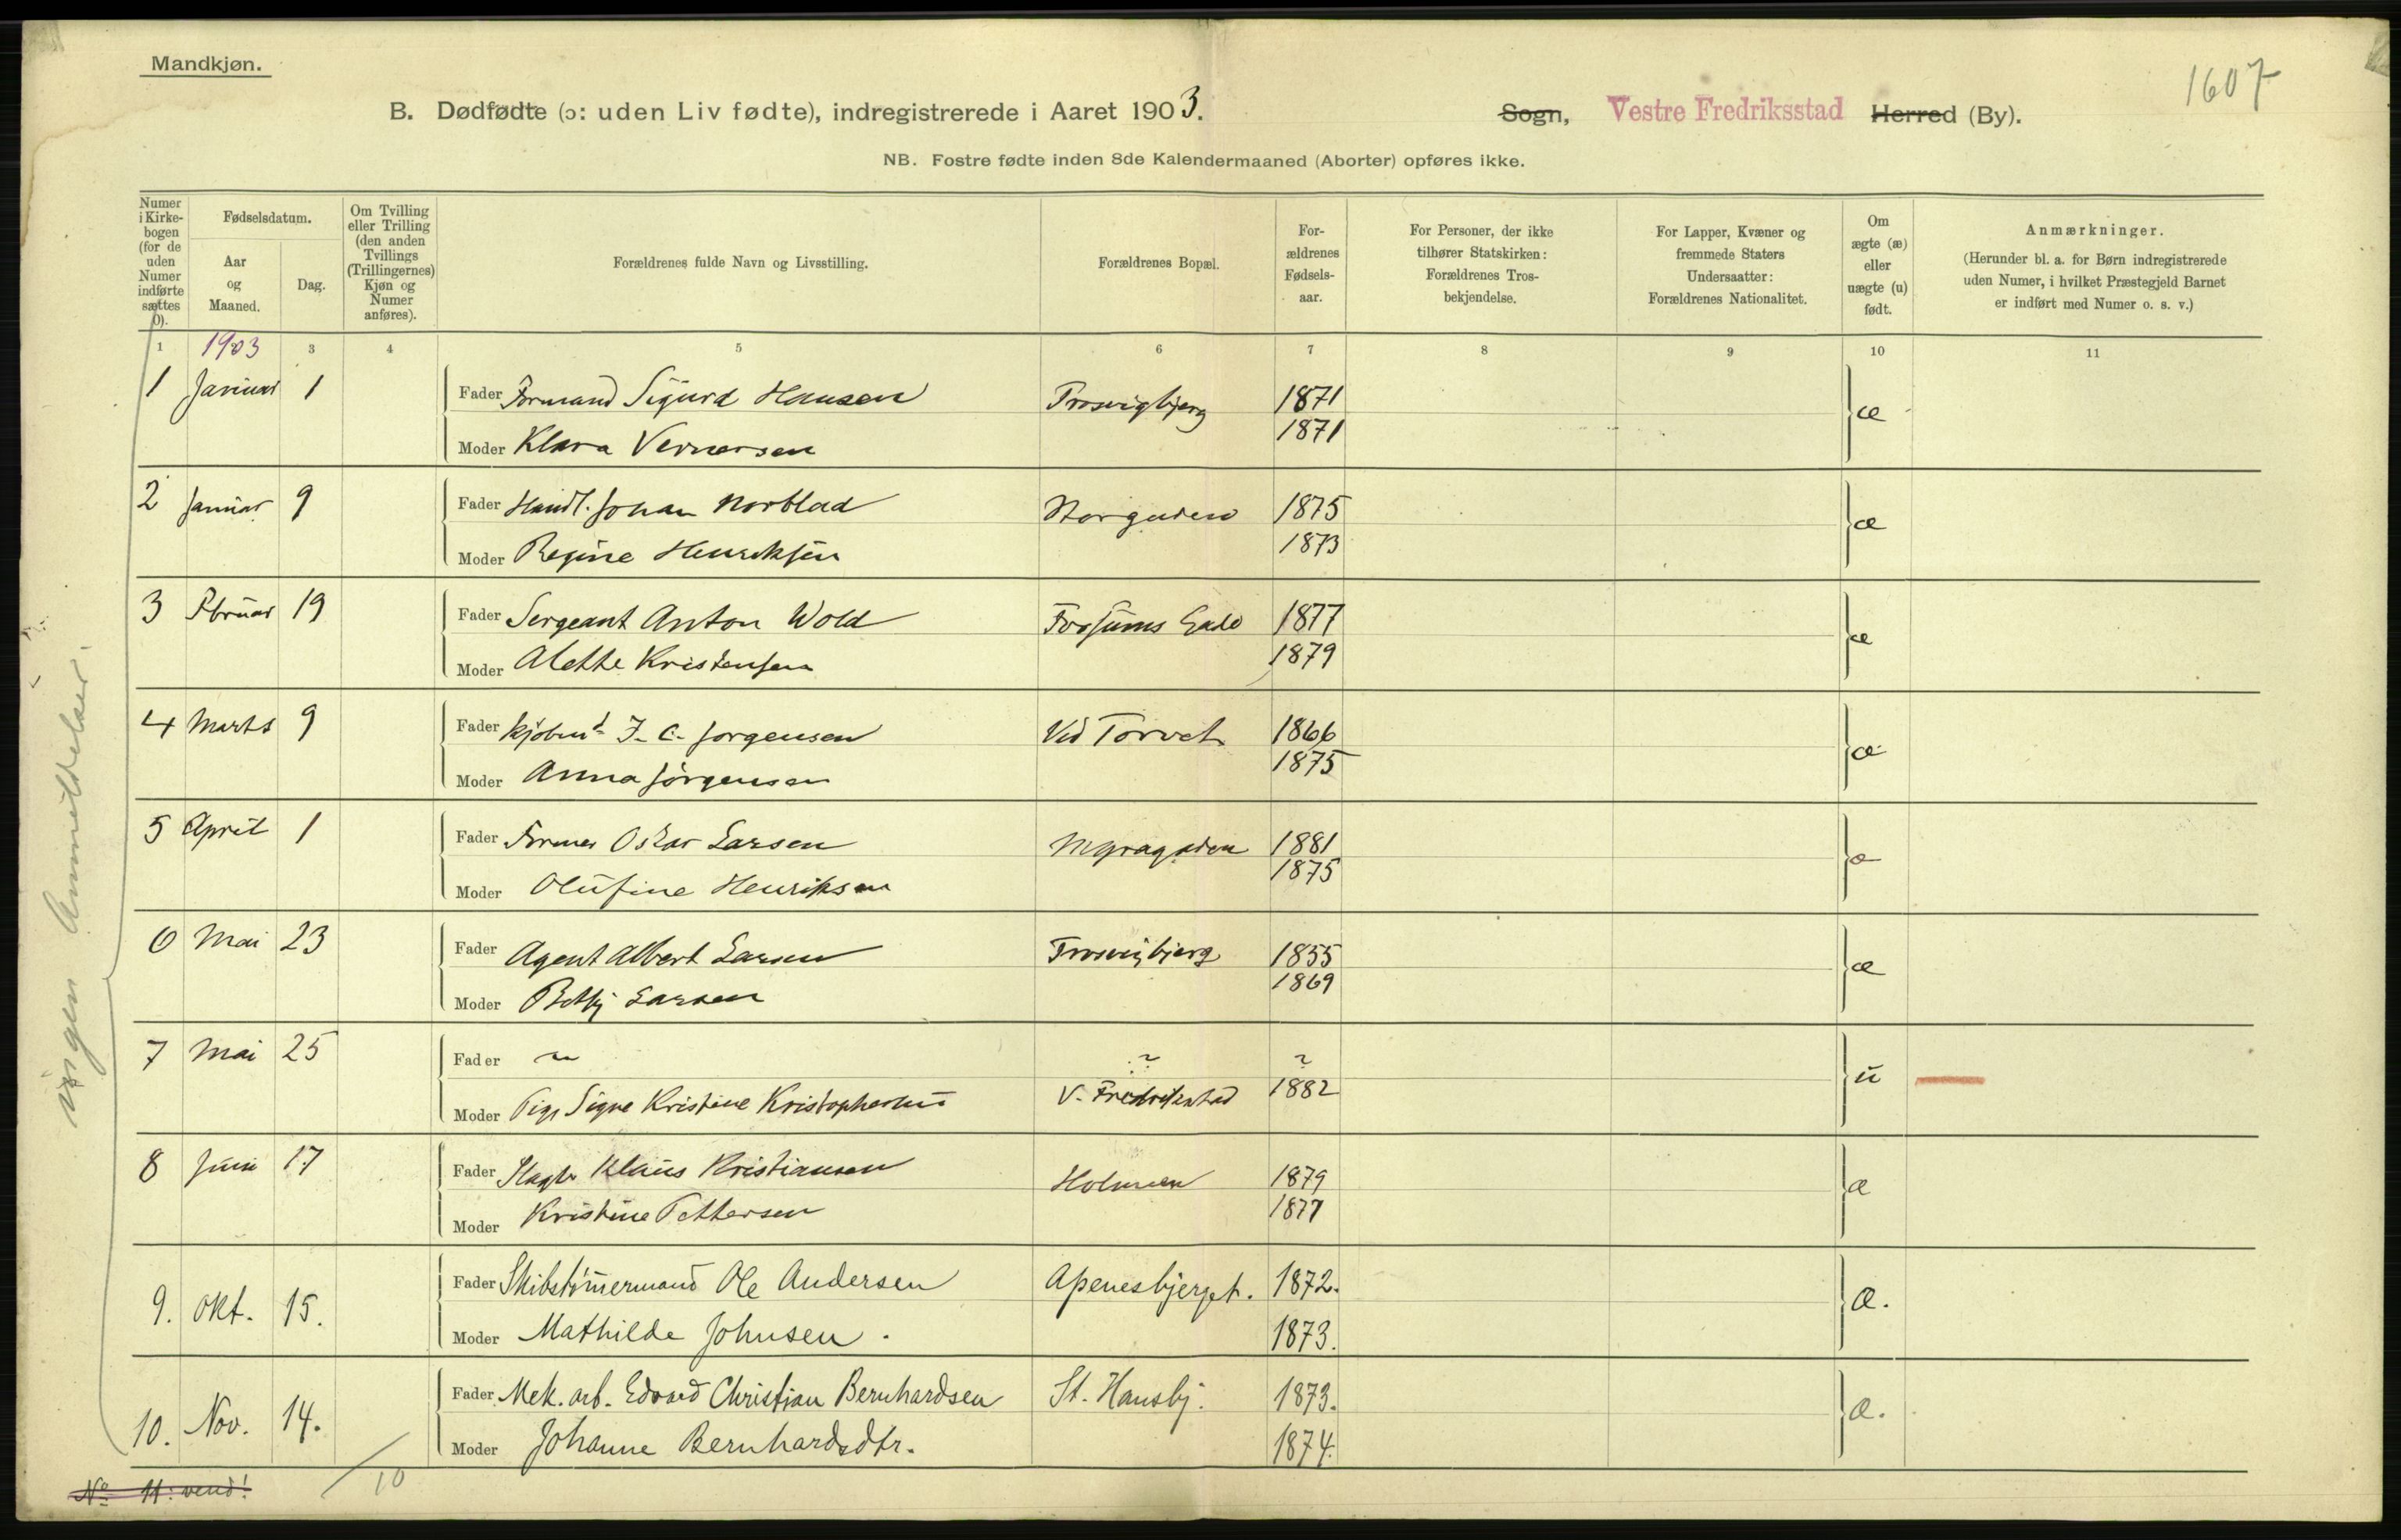 Mandkjøn.
1607
B. Dødfødte (ɔ: uden Liv fødte), indregistrerede i Aaret 1903.
Sogn, Vestre Fredriksstad Herred (By).
NB. Fostre fødte inden 8de Kalendermaaned (Aborter) opføres ikke.
Numer i Kirkebogen (for de uden Numer indførte sættes 0).
Fødselsdatum.
Aar og Maaned.
Dag.
Om Tvilling eller Trilling (den anden Tvillings (Trillingernes) Kjøn og Numer anføres).
Forældrenes fulde Navn og Livsstilling.
Forældrenes Bopæl.
Forældrenes Fødselsaar.
For Personer, der ikke tilhører Statskirken: Forældrenes Trosbekjendelse.
For Lapper, Kvæner og fremmede Staters Undersaatter: Forældrenes Nationalitet.
Om ægte (æ) eller uægte (u) født.
Anmærkninger.
(Herunder bl. a. for Børn indregistrerede uden Numer, i hvilket Præstegjeld Barnet er indført med Numer o. s. v.)
1 1903 3 4 5 6 7 8 9 10 11
1 Januar 1 Fader Formand Sigurd Hansen Trosvigbjerg 1871 æ
Moder Klara Vernersen 1871
2 Januar 9 Fader Handl. Johan Norblad Storgaden 1875 æ
Moder Regine Henriksen 1873
3 Februar 19 Fader Sergeant Anton Wold Forsums Gade 1877 æ
Moder Alette Kristensen 1879
4 Marts 9 Fader Kjøbmd J. C. Jørgensen Ved Torvet 1866 æ
Moder Anna Jørgensen 1875
5 April 1 Fader Former Oskar Larsen 1881 æ
Moder Olufine Henriksen 1875
6 Mai 23 Fader Agent Albert Larsen Trosvigbjerg 1855 æ
Moder Betsy Larsen 1869
7 Mai 25 Fader ~ ~ ~ u
Moder Pige Signe Kristine Kristophersen V. Fredrikstad 1882
8 Juni 17 Fader Slagter Klaus Kristiansen Holmen 1879 æ
Moder Kristine Pettersen 1877
9. Okt. 15. Fader Skibstømermand Ole Andersen Apenesbjerget. 1872. æ.
Moder Mathilde Johnsen. 1873.
10. Nov. 14. Fader Mek. arb. Edvard Christian Bernhardsen St. Hansbj. 1873. æ.
Moder Johanne Bernhardsdtr. 1874.
No 11: vend!
10
ingen Anmeldelser.